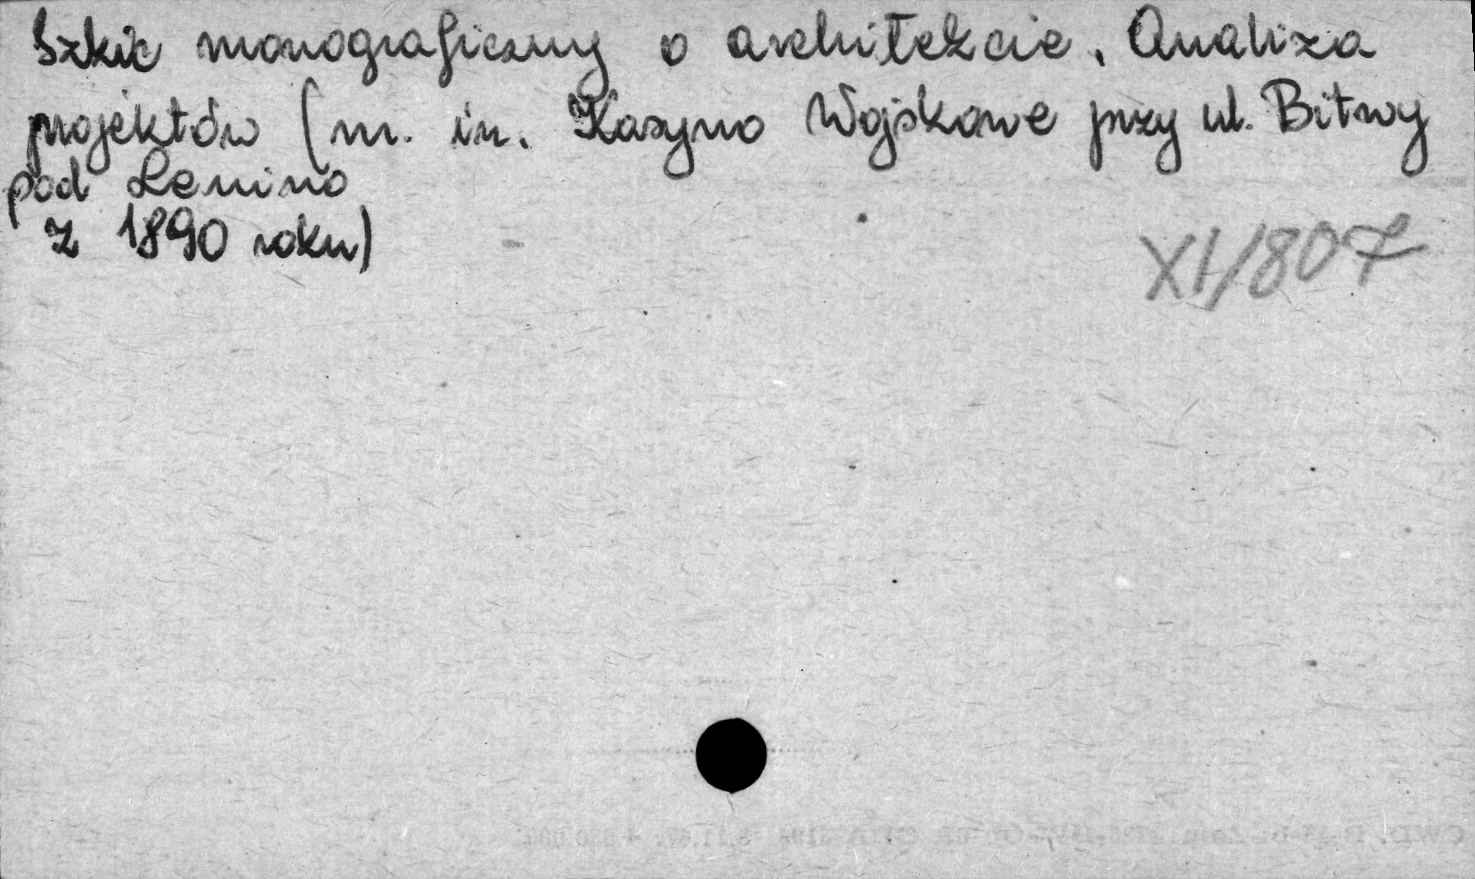 Szkic monograficzny o architekcie. Analiza
projektów (m. in. Kasyno Wojskowe przy ul. Bitwy
pod Lenino
z 1890 roku)
XI/807